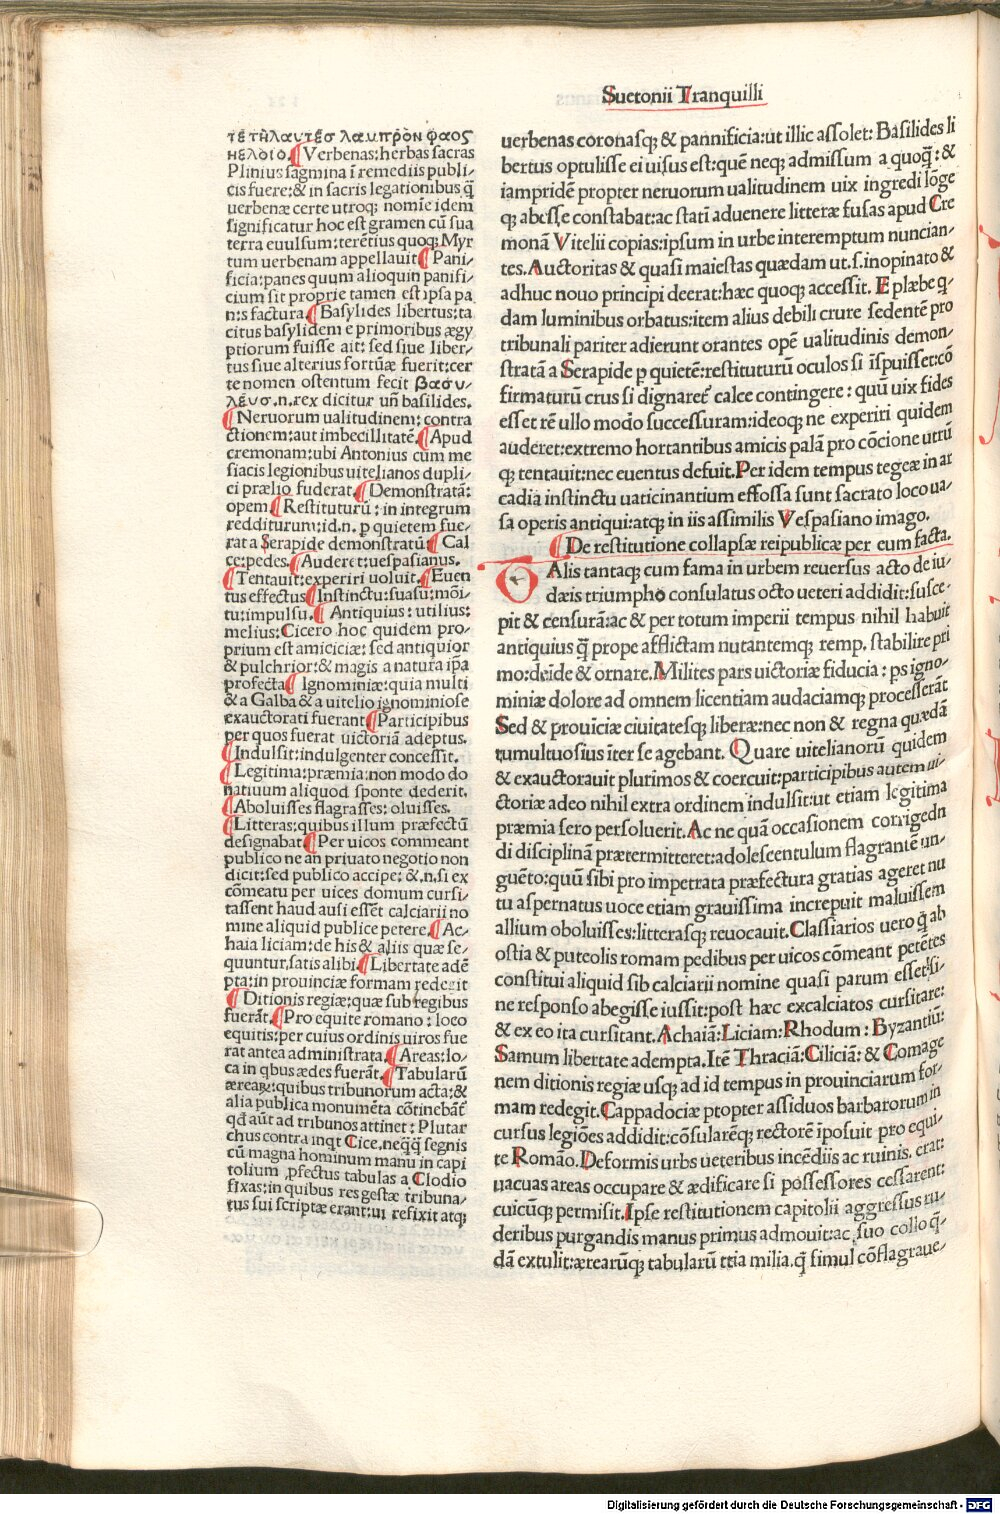 Suetonii Tranquilli
τέ τῆλαντέσ λαμπρόν φαοσ
ηελοιο. ¶ Verbenas: herbas sacras
Plinius sagmina ī remediis publi-
cis fuere: & in sacris legationibus q̄
uerbenæ certe utroq; nomīe idem
significatur hoc est gramen cū sua
terra euulsum: terētius quoq; Myr
tum uerbenam appellauit ¶ Pani-
ficia: panes quum alioquin panifi-
cium sit proprie tamen est ipsa pa
nis factura. ¶ Basylides libertus: ta
citus basylidem e primoribus ægy
ptiorum fuisse ait: sed siue liber-
tus siue alterius fortūæ fuerit: cer
te nomen ostentum fecit βασυ-
λέυσ .n. rex dicitur uñ basilides.
¶ Neruorum ualitudinem: contra
ctionem: aut imbecillitatē. ¶ Apud
cremonam: ubi Antonius cum me
siacis legionibus uitelianos dupli-
ci prælio fuderat. ¶ Demonstratā:
opem ¶ Restituturū: in integrum
redditurum: id .n. p quietem fue-
rat a Serapide demonstratū ¶ Cal
ce: pedes. ¶ Auderet: uespasianus.
¶ Tentauit: experiri uoluit. ¶ Euen
tus effectus ¶ Instinctu: suasu: mōi
tu: impulsu. ¶ Antiquius: utilius:
melius: Cicero hoc quidem pro-
prium est amiciciæ: sed antiquior
& pulchrior: & magis a natura ip̄a
profecta ¶ Ignominiæ: quia multi
& a Galba & a uitelio ignominiose
exauctorati fuerant ¶ Participibus
per quos fuerat uictoriā adeptus.
¶ Indulsit: indulgenter concessit.
¶ Legitima: præmia: non modo do
natiuum aliquod sponte dederit.
¶ Aboluisses flagrasses: oluisses.
¶ Litteras: quibus illum præfectū
designabat ¶ Per uicos commeant
publico ne an priuato negotio non
dicit: sed publico accipe: & .n. si ex
cōmeatu per uices domum cursi-
tassent haud ausi essēt calciarii no
mine aliquid publice petere. ¶ Ac-
haia liciam: de his & aliis quæ se-
quuntur, satis alibi. ¶ Libertate adē
pta: in prouinciæ formam redegit
¶ Ditionis regiæ: quæ sub regibus
fuerāt. ¶ Pro equite romano: loco
equitis: per cuius ordinis uiros fue
rat antea administrata. ¶ Areas: lo-
ca in qbus ædes fuerāt. ¶ Tabularū
æreaꝝ: quibus tribunorum acta: &
alia publica monumēta cōtinebāt̄
qd̄ aūt ad tribunos attinet: Plutar
chus contra inqt Cice. neq̄q̄ segnis
cū magna hominum manu in capi
tolium ꝓfectus tabulas a Clodio
fixas: in quibus res gestæ tribuna-
tus sui scriptæ erant: ui refixit atq;
uerbenas coronasq; & pannificia: ut illic assolet: Basilides li
bertus optulisse ei uisus est: quē neq; admissum a quoq̄: &
iampridē propter neruorum ualitudinem uix ingredi lōge
q; abesse constabat: ac statī aduenere litteræ fusas apud Cre
monā Vitelii copias: ipsum in urbe interemptum nuncian-
tes. Auctoritas & quasi maiestas quædam ut .s. inopinato &
adhuc nouo principi deerat: hæc quoq; accessit. E plæbe q-
dam luminibus orbatus: item alius debili crure sedentē pro
tribunali pariter adierunt orantes opē ualitudinis demon-
stratā a Serapide p quietē: restituturū oculos si īspuisset: cō
firmaturū crus si dignaret̄ calce contingere: quū uix fides
esset rē ullo modo successuram: ideoq; ne experiri quidem
auderet: extremo hortantibus amicis palā pro cōcione utrū
q; tentauit: nec euentus defuit. Per idem tempus tegeæ in ar
cadia instinctu uaticinantium effossa sunt sacrato loco ua-
sa operis antiqui: atq; in iis assimilis Vespasiano imago.
¶ De restitutione collapsæ reipublicæ per eum facta.
TAlis tantaq; cum fama in urbem reuersus acto de iu-
dæis triumpho consulatus octo ueteri addidit: susce-
pit & censurā: ac & per totum imperii tempus nihil habuit
antiquius q̄ prope afflictam nutantemq; remp. stabilire pri
mo: deīde & ornare. Milites pars uictoriæ fiducia: ps igno-
miniæ dolore ad omnem licentiam audaciamq; processerāt
Sed & prouīciæ ciuitatesq; liberæ: nec non & regna quædā
tumultuosius īter se agebant. Quare uitelianorū quidem
& exauctorauit plurimos & coercuit: participibus autem ui-
ctoriæ adeo nihil extra ordinem indulsit: ut etiam legitima
præmia sero persoluerit. Ac ne quā occasionem corrigedn
di disciplinā prætermitteret: adolescentulum flagrantē un-
guēto: quū sibi pro impetrata præfectura gratias ageret nu
tu aspernatus uoce etiam grauissima increpuit maluissem
allium oboluisses: litterasq; reuocauit. Classiarios uero q̄ ab
ostia & puteolis romam pedibus per uicos cōmeant petētes
constitui aliquid sib calciarii nomine quasi parum esset: si-
ne responso abegisse iussit: post hæc excalciatos cursitare:
& ex eo ita cursitant. Achaiā: Liciam: Rhodum: Byzantiū:
Samum libertate adempta. Itē Thraciā: Ciliciā: & Comage
nem ditionis regiæ usq; ad id tempus in prouinciarum for-
mam redegit. Cappadociæ ptopter assiduos barbarorum in
cursus legiōes addidit: cōsularēq; rectorē īposuit pro equi-
te Romāo. Deformis urbs ueteribus incēdiis ac ruinis. erat:
uacuas areas occupare & ædificare si possessores cessarent:
cuicūq; permisit. Ipse restitutionem capitolii aggressus ru-
deribus purgandis manus primus admouit: ac suo collo q-
dā extulit: ærearūq; tabularū tria milia. q̄ simul cōflagraue-
Digitalisierung gefördert durch die Deutsche Forschungsgemeinschaft - DFG